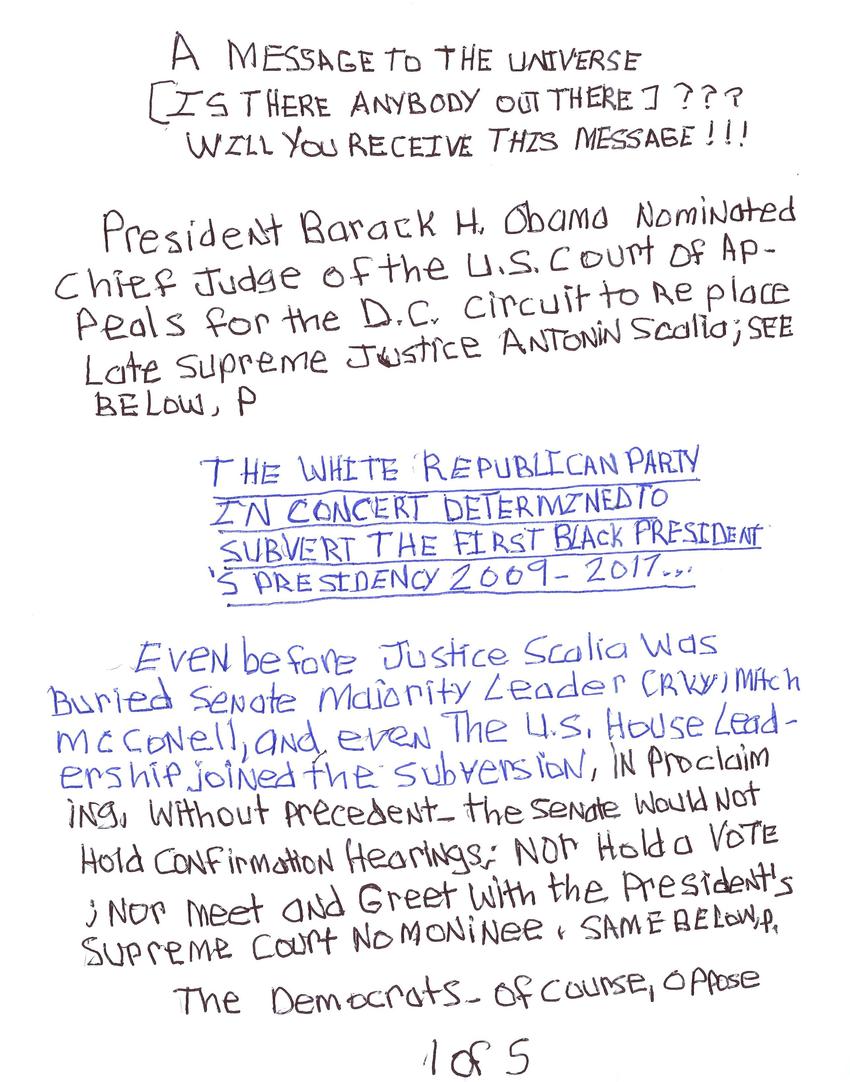 A MESSAGE TO THE UNIVERSE
[IS THERE ANYBODY OUT THERE] ???
WILL YOU RECEIVE THIS MESSAGE!!!
President Barack H. Obama Nominated
Chief Judge of the U.S. Court of Ap-
peals for the D.C. circuit to Replace
Late Supreme Justice ANTONIN Scalia; SEE
BELOW, P
THE WHITE REPUBLICAN PARTY
IN CONCERT DETERMINED TO
SUBVERT THE FIRST BLACK PRESIDENT
'S PRESIDENCY 2009-2017...
Even before Justice Scalia was
Buried Senate Majority Leader (RKY) Mitch
McConell, and even The U.S. House Lead-
ership joined the subversion, in Proclaim
ing, without precedent- the Senate would Not
Hold confirmation Hearings; Nor Hold a VOTE
; Nor meet and Greet with the President's
Supreme Court Nominee. SAME BELOW, P.
The Democrats- of course, oppose
1 of 5